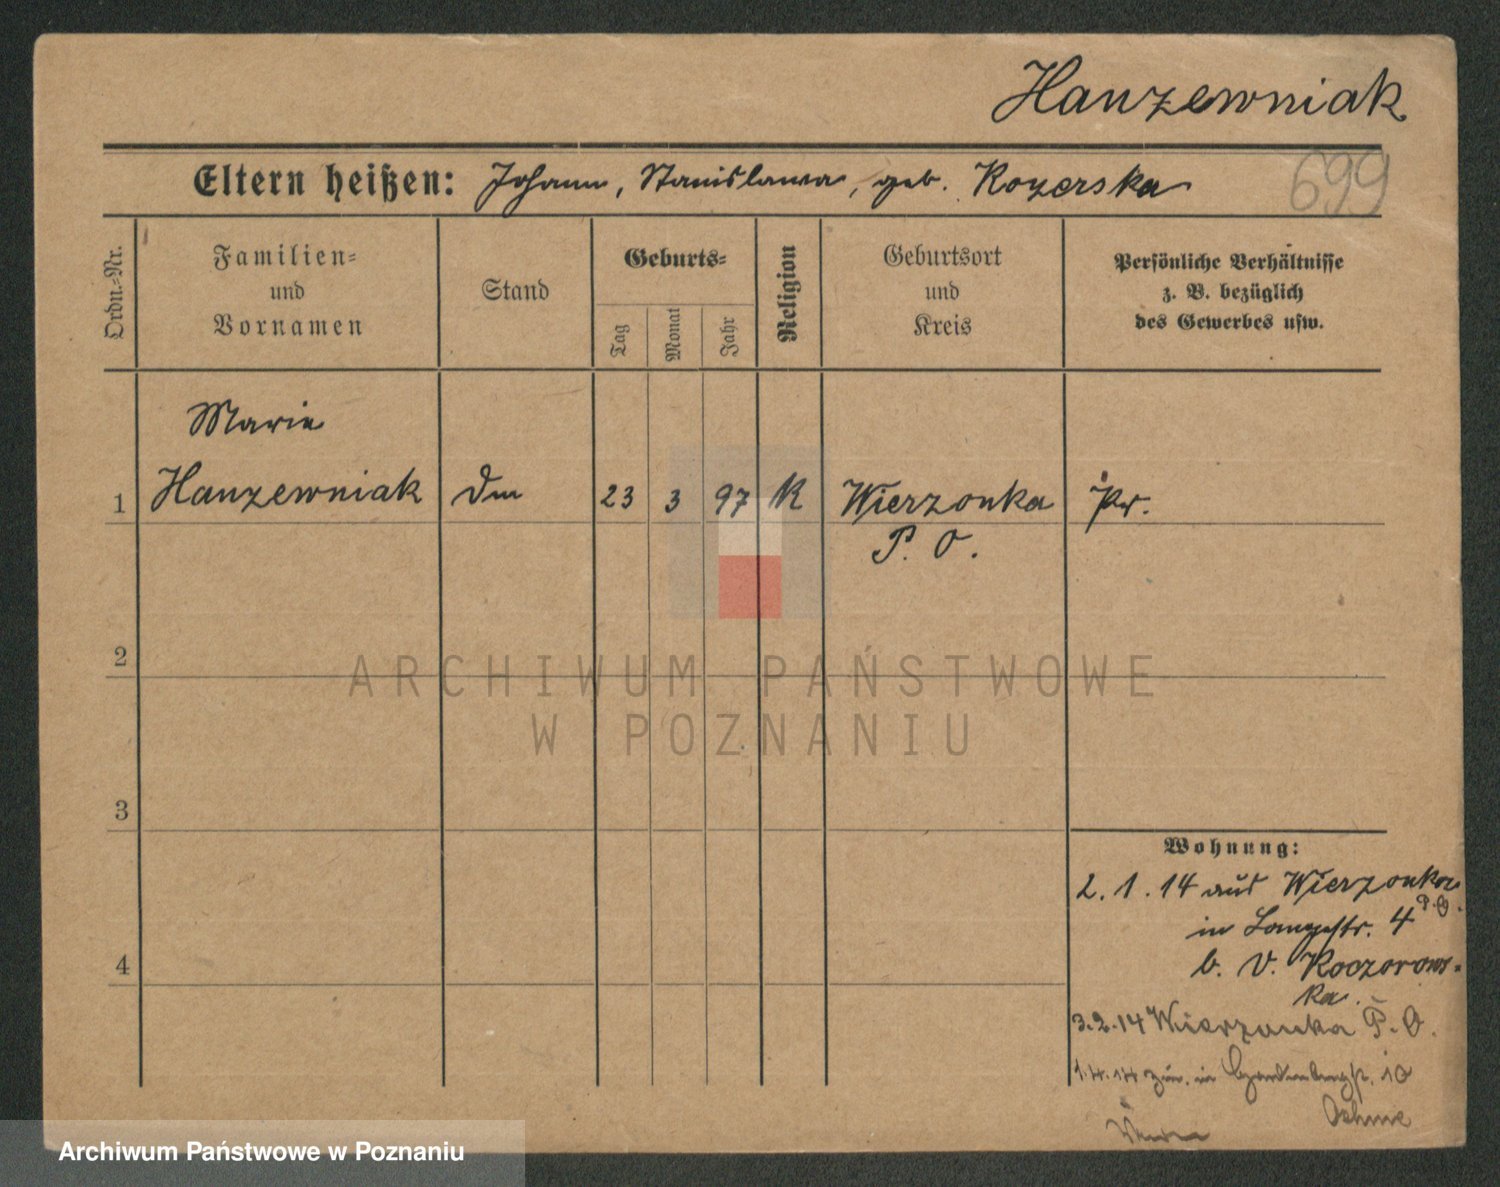 Hanzewniak
Eltern heißen: Johann, Stanislawa, geb. Kozerska
699
Ordn.-Nr.
Familien-
und
Vornamen
Stand
Geburts-
Tag
Monat
Jahr
Religion
Geburtsort
und
Kreis
Persönliche Verhältnisse
z. B. bezüglich
des Gewerbes usw.
Marie
1 Hanzewniak 23 3 97 K Wierzonka Pr.
P. O.
2
3
4
Wohnung:
2.1.14 aus Wierzonka
P. O.
in Langestr. 4
b. V. Koczorows-
ka.
3.2.14 Wierzonka P. O.
1.4.14 in 10
ARCHIWUM PAŃSTWOWE
W POZNANIU
Archiwum Państwowe w Poznaniu